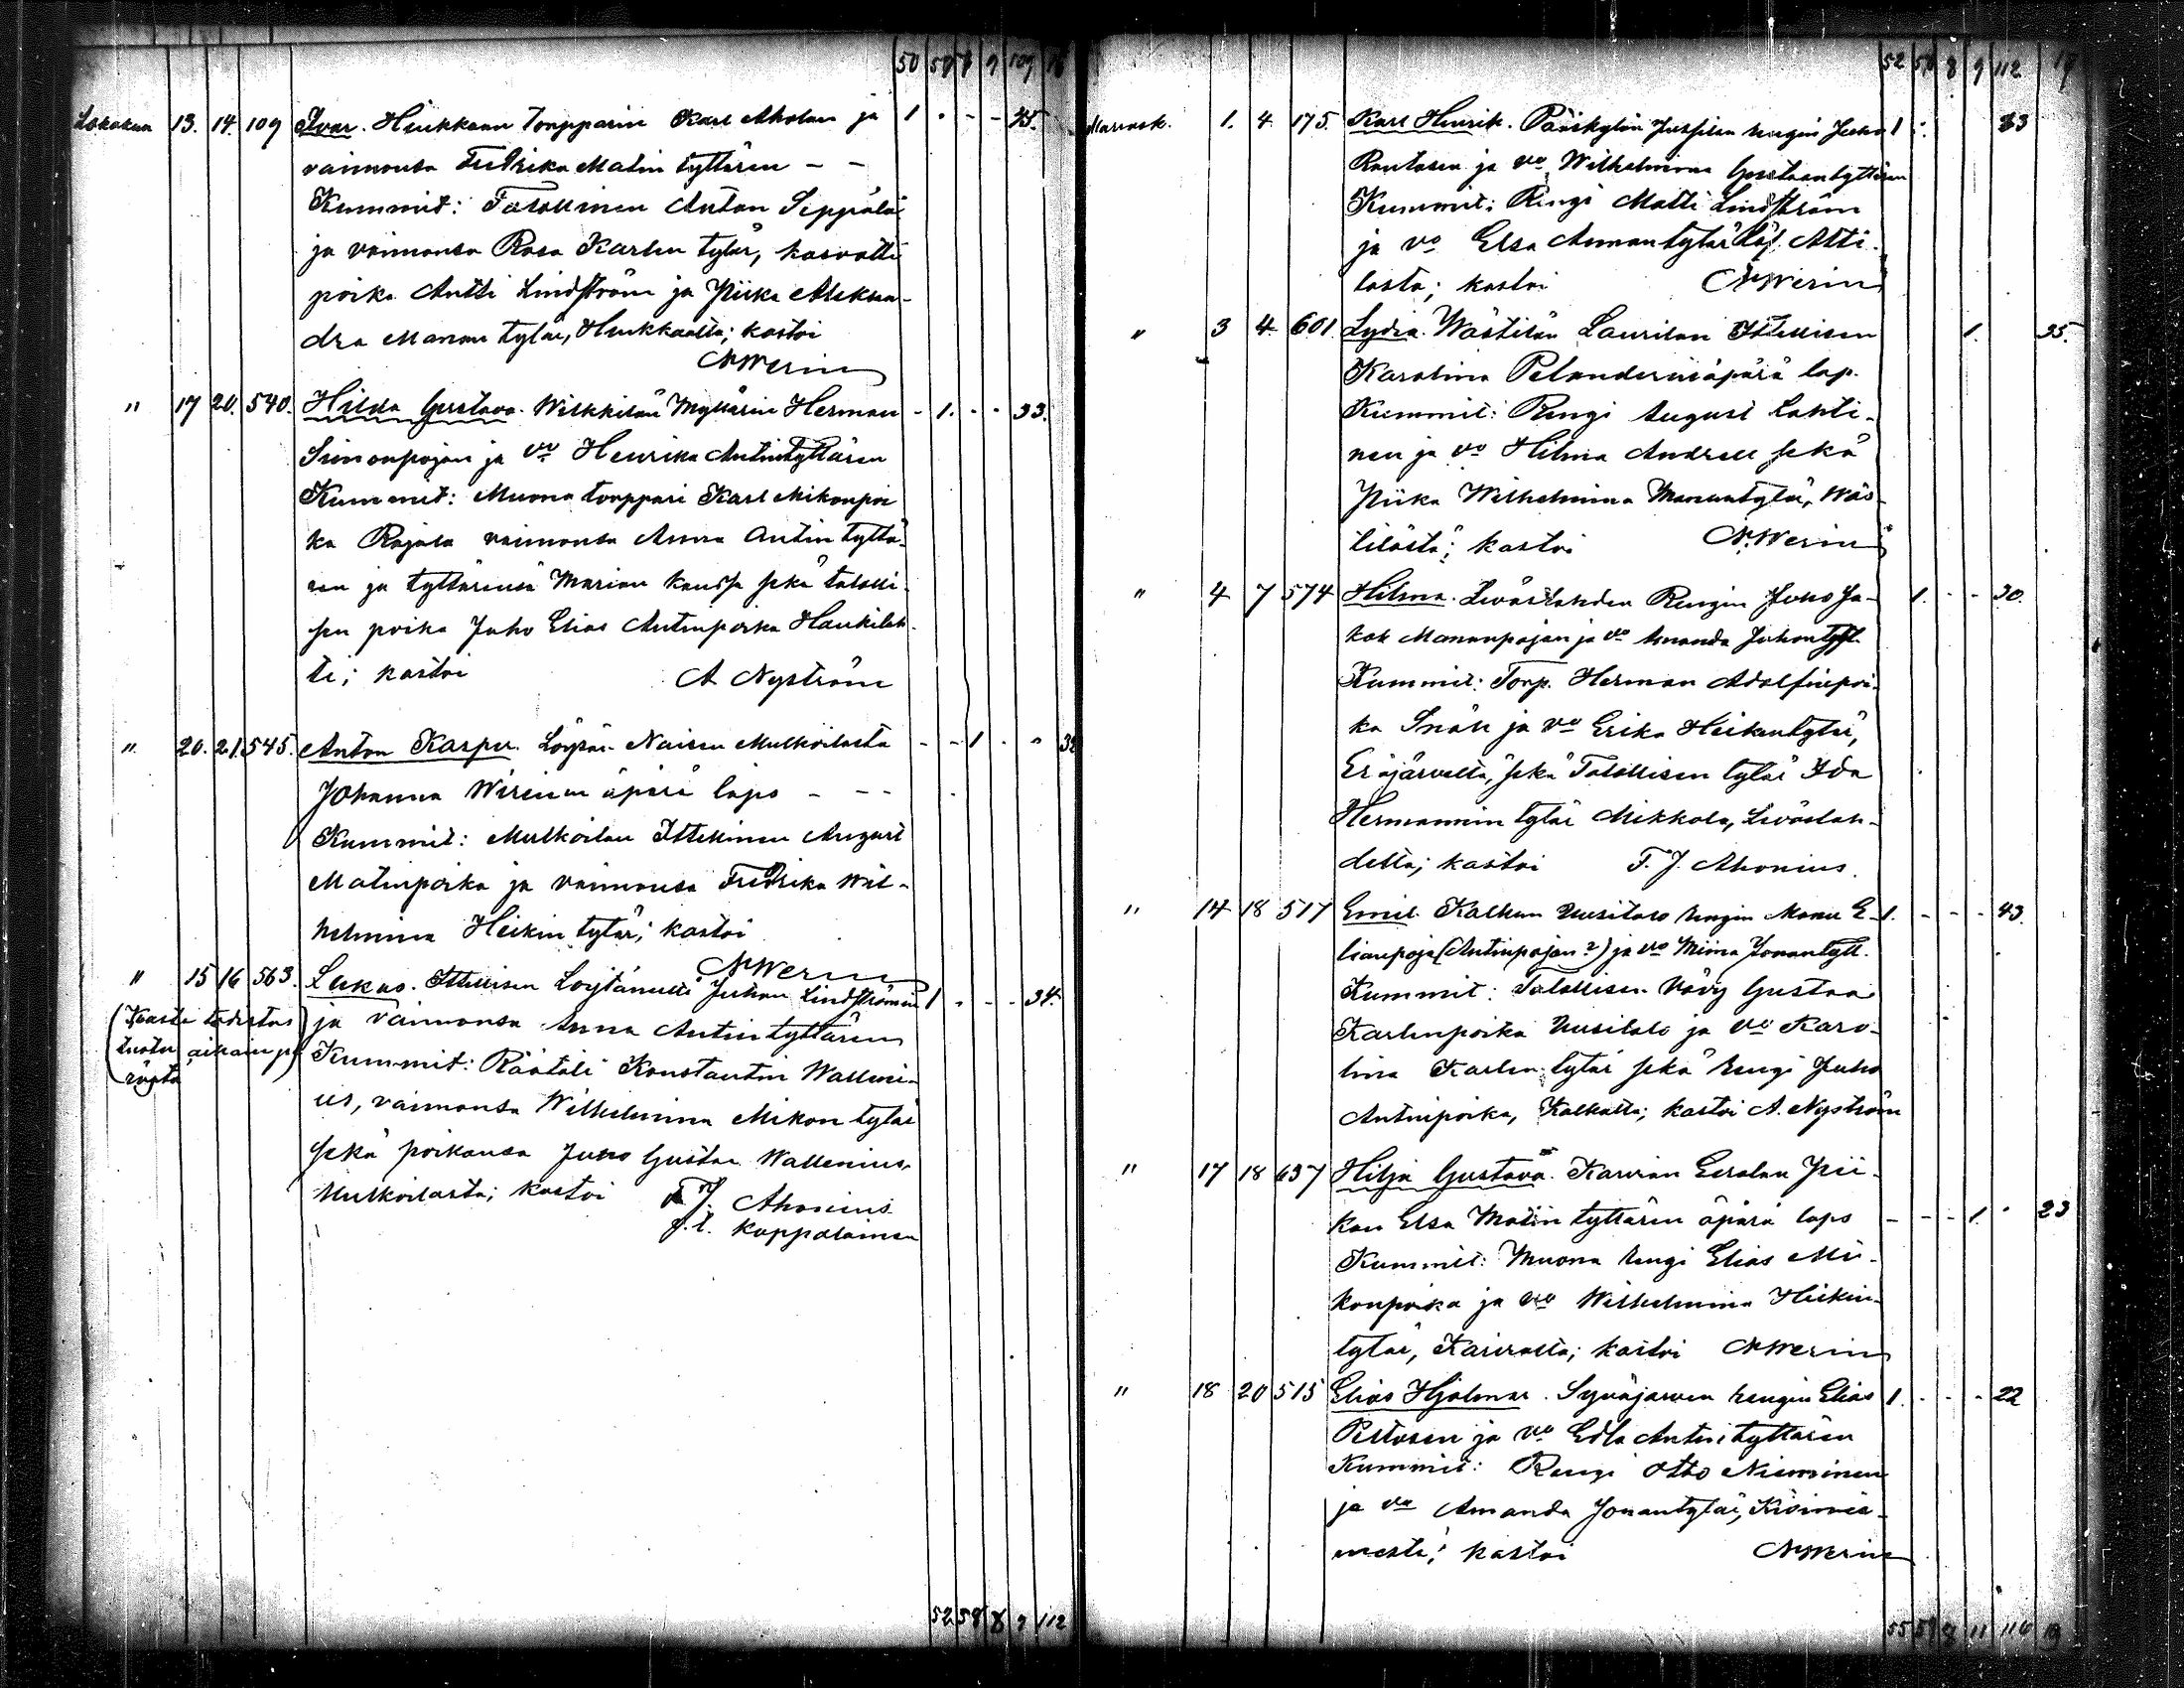 50 58 8 9 109 18
Lokakuu 13. 14. 109 Ivar. Hiukkaan Torpparin Karl Aholan ja 1 . - - 45.
vaimonsa Fredrika Matin tyttären - -
Kummit: Talollinen Anton Seppälä
ja vaimonsa Rosa Karlen tytär, kasvatti
poika Antti Lindström ja Piika Aleksan-
dra Manun tytär, Hiukkaalta; kastoi
A Werin
" 17 20. 540. Hilda Gustava. Wilkkilän Myllärin Herman - 1. - - 33.
Simonpojan ja vo Henrika Antintyttären
Kummit: Muona torppari Karl Mikonpoi
ka Rajala vaimonsa Anna Antin tyttä-
ren ja tyttärensä Marian kanssa sekä talolli-
sen poika Juho Elias Antinpoika Haukilah-
ti; kastoi A Nyström
" 20. 21. 545. Anton Kasper. Löysän Naisen Mulkoilasta - - 1 . " 38
Johanna Wireenin äpärä laps - - -
Kummit: Mulkoilan Itsellinen August
Matinpoika ja vaimonsa Fredrika Wil-
helmina Heikin tytär; kastoi
A Werin
" 15 16 563. Lukas. Itsellisen Löytäneellä Juhan Lindströmin 1 . - - 34.
(Kaste todistus ja vaimonsa Anna Antin tyttären
tuotu aikain pe
räystä) Kummit: Räätäli Konstantin Walleni-
us, vaimonsa Wilhelmina Mikon tytär
sekä poikansa Juho Gustav Wallenius
Mulkoilasta; kastoi F J. Ahonius
v. t. kappalainen
52 58 8 9 112
52 58 8 9 112 19
Marrask. 1. 4. 175. Karl Henrik. Pääskylän Jussilan rengin Juho 1 . 33
Rantasen ja vo Wilhelmina Gustaantyttären
Kummit: Rengi Matti Lindström
ja vo Elsa Annantytär Atti-
lasta; kastoi A Werin
" 3 4 601. Lydia. Wästilän Laurilan Itsellisen 1. 35.
Karolina Pelanderin äpärä lap.
Kummit: Rengi August Lahti-
nen ja vo Hilma Andrell sekä
Piika Wilhelmina Manuntytär, Wäs-
tilästä; kastoi A. Werin
" 4 7 574 Hilma. Leväslahden Rengin Juho Ja- 1. - - 30.
kob Manunpojan ja vo Amanda Juhontytt.
Kummit: Torp. Herman Adolfinpoi-
ka Snäll ja vo Erika Heikintytär,
Eräjärveltä, sekä Talollisen tytär Ida
Hermannin tytär Mikkola, Leväslah-
delta; kastoi F. J. Ahonius.
" 14 18 517 Emil. Kalkun Uusitalo rengin Manu E- 1. - - - 43.
lianpoja (Antinpojan?) ja vo Miina Jonantytt.
Kummit: Talollisen Vävy Gustaa
Karlenpoika Uusitalo ja vo Karo-
lina Karlen tytär sekä rengi Juho
Antinpoika, Kalkulta; kastoi A. Nyström
" 17 18 637 Hilja Gustava. Karvian Eerolan Pii-
kan Elsa Matin tyttären äpärä laps - - - 1. . 23
Kummit: Muona rengi Elias Mi-
konpoika ja vo Wilhelmina Heikin-
tytär, Karvialta; kastoi A Werin
" 18 20 515 Elias Hjalmar. Syväjärven rengin Elias 1. - - - 22
Peltosen ja vo Edla Antin tyttären
Kummit: Rengi Otto Nieminen
ja vo Amanda Jonantytär,
mestä; kastoi A Werin
55 58 8 11 116 19